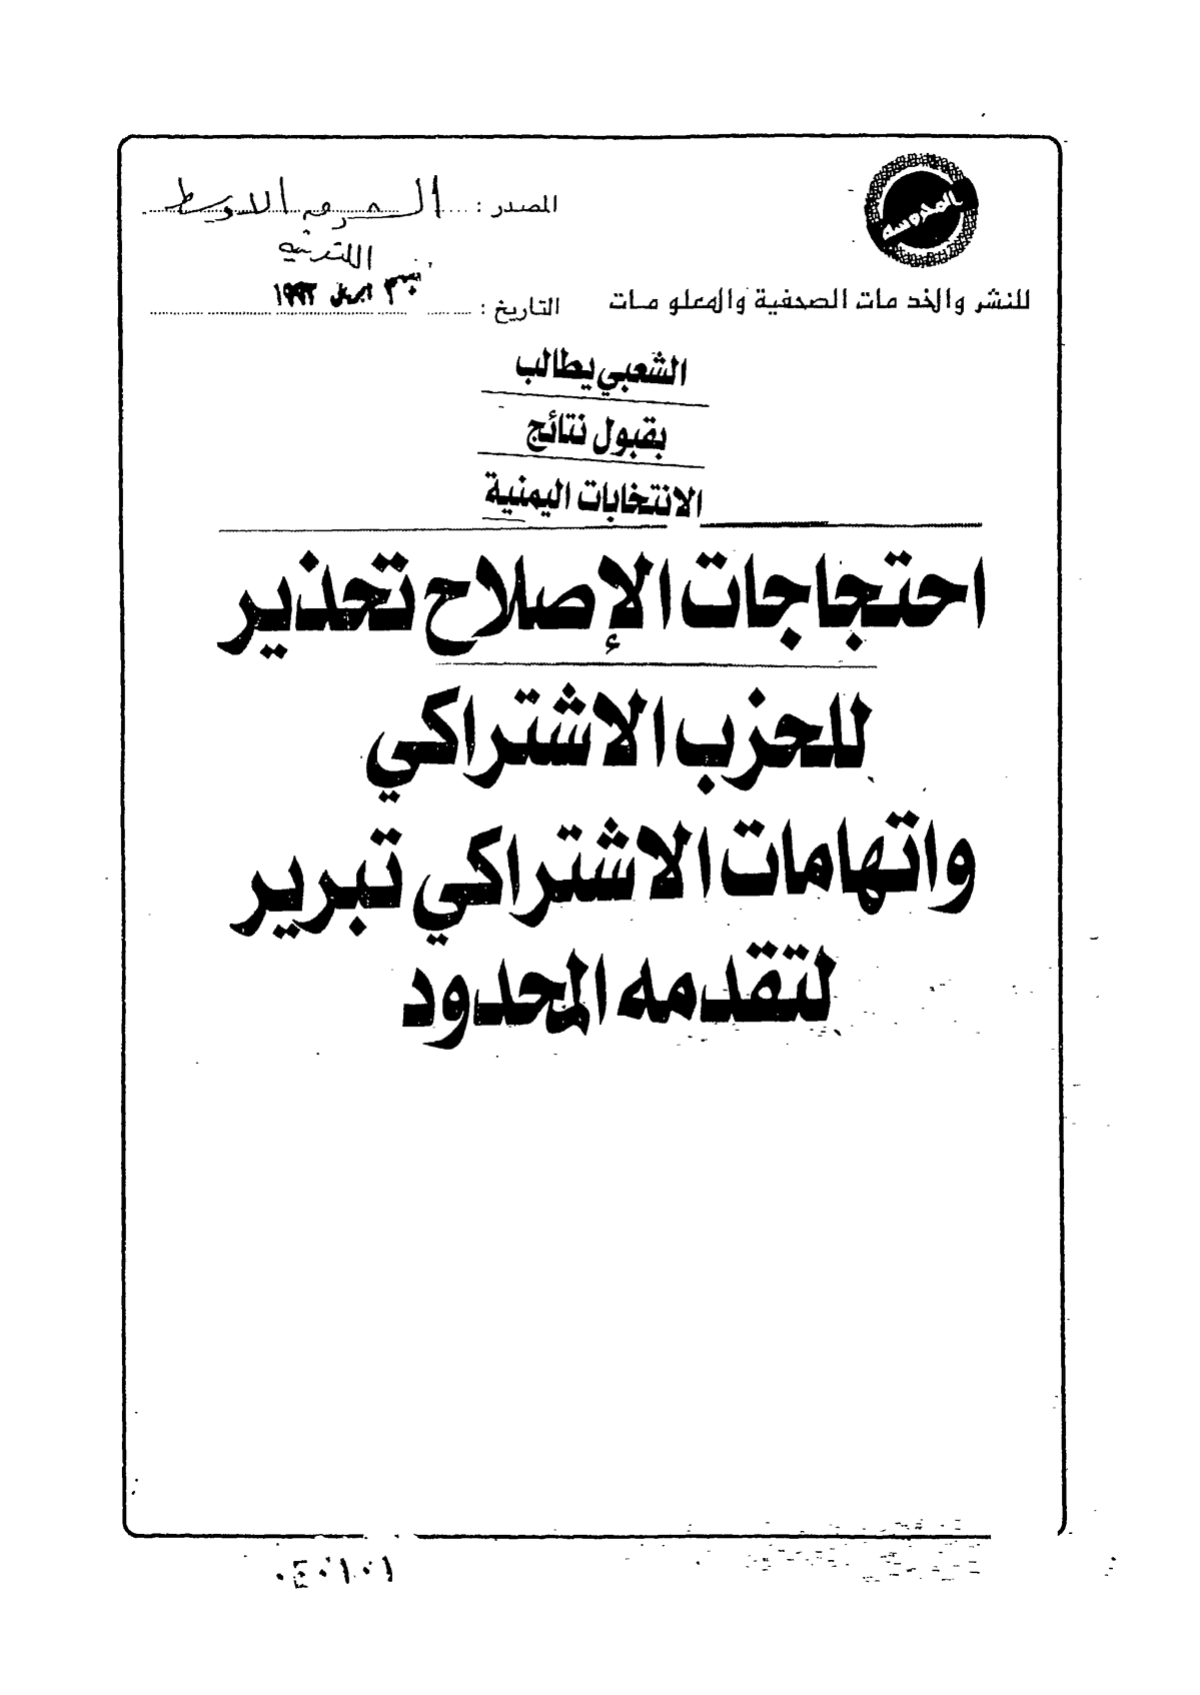 المحروسة
المصدر : الشرق الاوسط
اللندنية
للنشر والخدمات الصحفية والمعلومات
التاريخ : ٣٠ ابريل ١٩٩٣
الشعبي يطالب
بقبول نتائج
الانتخابات اليمنية
احتجاجات الإصلاح تحذير
للحزب الاشتراكي
واتهامات الاشتراكي تبرير
لتقدمه المحدود